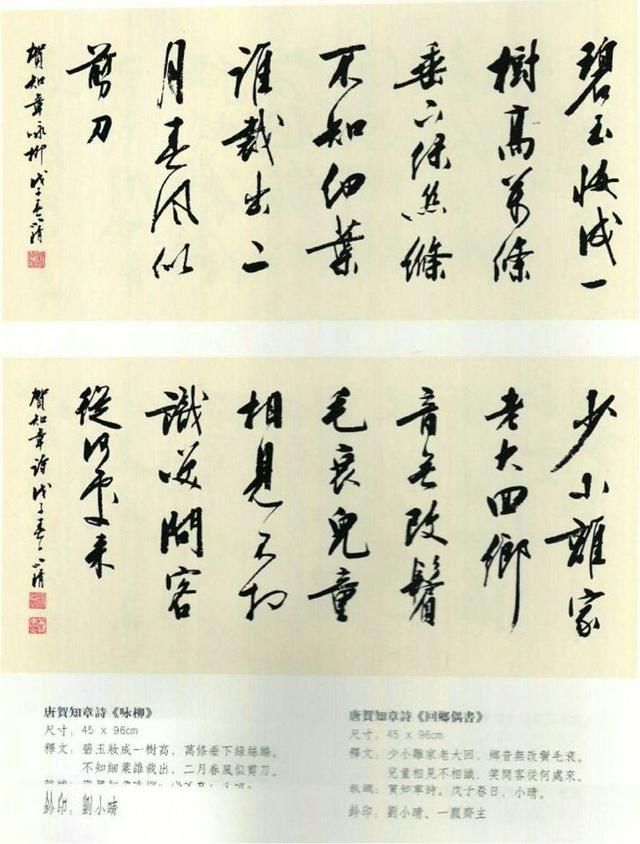 碧玉妝成一
樹高萬條
垂下綠絲縧
不知細葉
誰裁出二
月春風似
剪刀
賀知章咏柳戊子春小晴
少小離家
老大回鄉
音無改鬢
毛衰兒童
相見不相
識笑問客
從何處來
賀知章詩戊子春日小晴
唐賀知章詩《咏柳》
尺寸：45 x 96cm
釋文：碧玉妝成一樹高，萬條垂下綠絲縧。
不知細葉誰裁出，二月春風似剪刀。
鈐印：劉小晴
唐賀知章詩《回鄉偶書》
尺寸：45 x 96cm
釋文：少小離家老大回，鄉音無改鬢毛衰。
兒童相見不相識，笑問客從何處來。
款識：賀知章詩。戊子春日，小晴。
鈐印：劉小晴、一瓢齋主